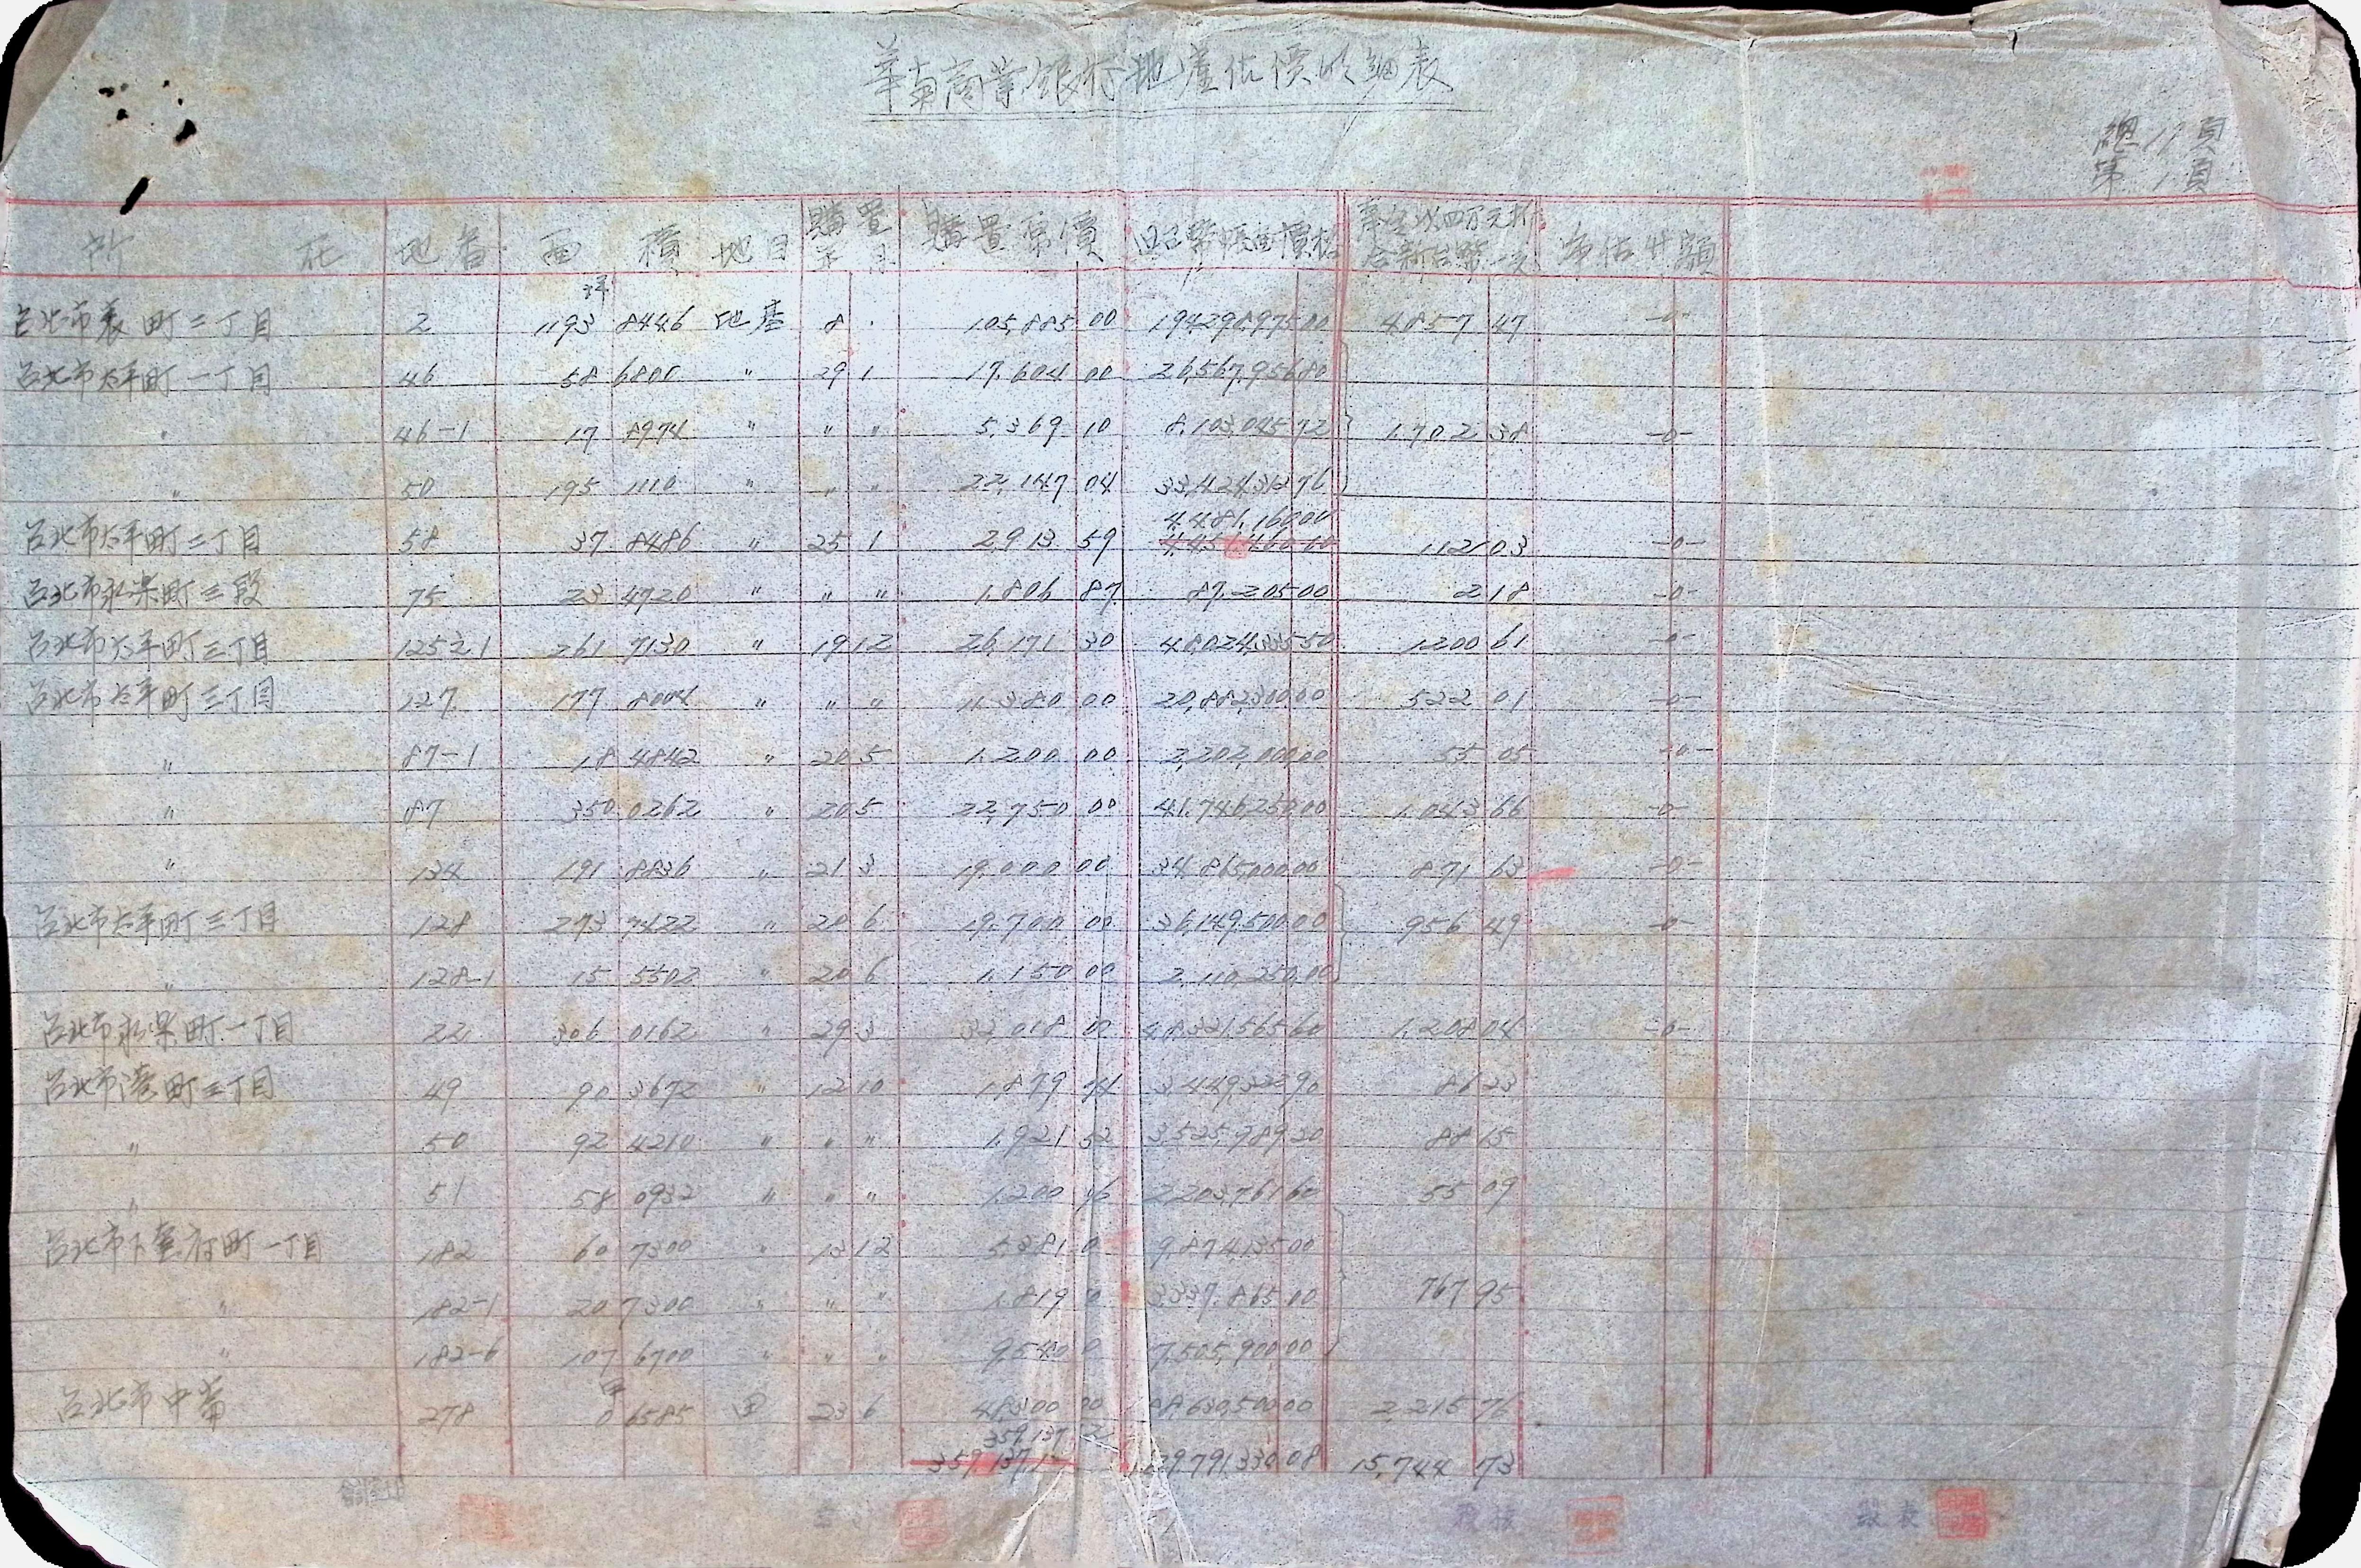 華南商業銀行地產估價明細表
總11頁
第1頁
所 在 地番 面 積 地目 購置年月 購置原價 旧台幣帳面價格 合新台幣一元 審估廿額
台北市表町二丁目 2 1193坪 8446 8 105,885 00 194,290,975 00 4857 47 -0-
台北市太平町一丁目 46 58 6800 〃 29 1 17,604 00 26,567,956 80
〃 46-1 17 8974 〃 〃 〃 5,369 10 8,103,045 72 1,702 38 -0-
〃 50 195 1110 〃 〃 〃 22,147 04 33,424,313 76
4,481,160 00
台北市太平町二丁目 58 37 8486 〃 25 1 2,913 59 112 03 -0-
台北市永楽町三段 75 23 4720 〃 〃 〃 1,806 87 87,205 00 2 18 -0-
台北市太平町三丁目 125 2 1 261 7130 〃 19 12 26,171 30 48,024,335 50 1200 61 -0-
台北市太平町三丁目 127 177 8004 〃 〃 〃 11,380 00 20,882,300 00 522 01 -0-
〃 87-1 18 4842 〃 20 5 1,200 00 2,202,000 00 55 05 -0-
〃 87 350 0262 〃 20 5 22,750 00 41,746,250 00 1,043 66 -0-
〃 134 191 8836 〃 21 3 19,000 00 34,865,000 00 871 63 -0-
台北市太平町三丁目 128 273 7422 〃 20 6 19,700 00 36,149,500 00 956 49 -0-
〃 128-1 15 5502 〃 20 6 1,150 00 2,110,250 00
台北市永楽町一丁目 22 306 0162 〃 29 3 32,018 00 48,321,565 60 1,208 04 -0-
台北市港町三丁目 49 90 3672 〃 12 10 1,879 74 3,449,322 90 86 23
〃 50 92 4210 〃 〃 〃 1,921 52 3,525,989 20 88 15
〃 51 58 0932 〃 〃 〃 1,200 96 2,203,761 60 55 09
台北市下奎府町一丁目 182 60 7300 〃 13 12 5,381 0 9,874,135 00
〃 182-1 20 7300 〃 〃 〃 1,819 0 3,337,865 00 767 95
〃 182-6 107 6700 〃 〃 〃 9,540 0 7,505,900 00
台北市中崙 278 甲 0 6585 田 23 6 48,300 00 88,630,500 00 2,215 76
359,137 2
359,137 1 29,791,330 08 15,744 73
覆核 製表